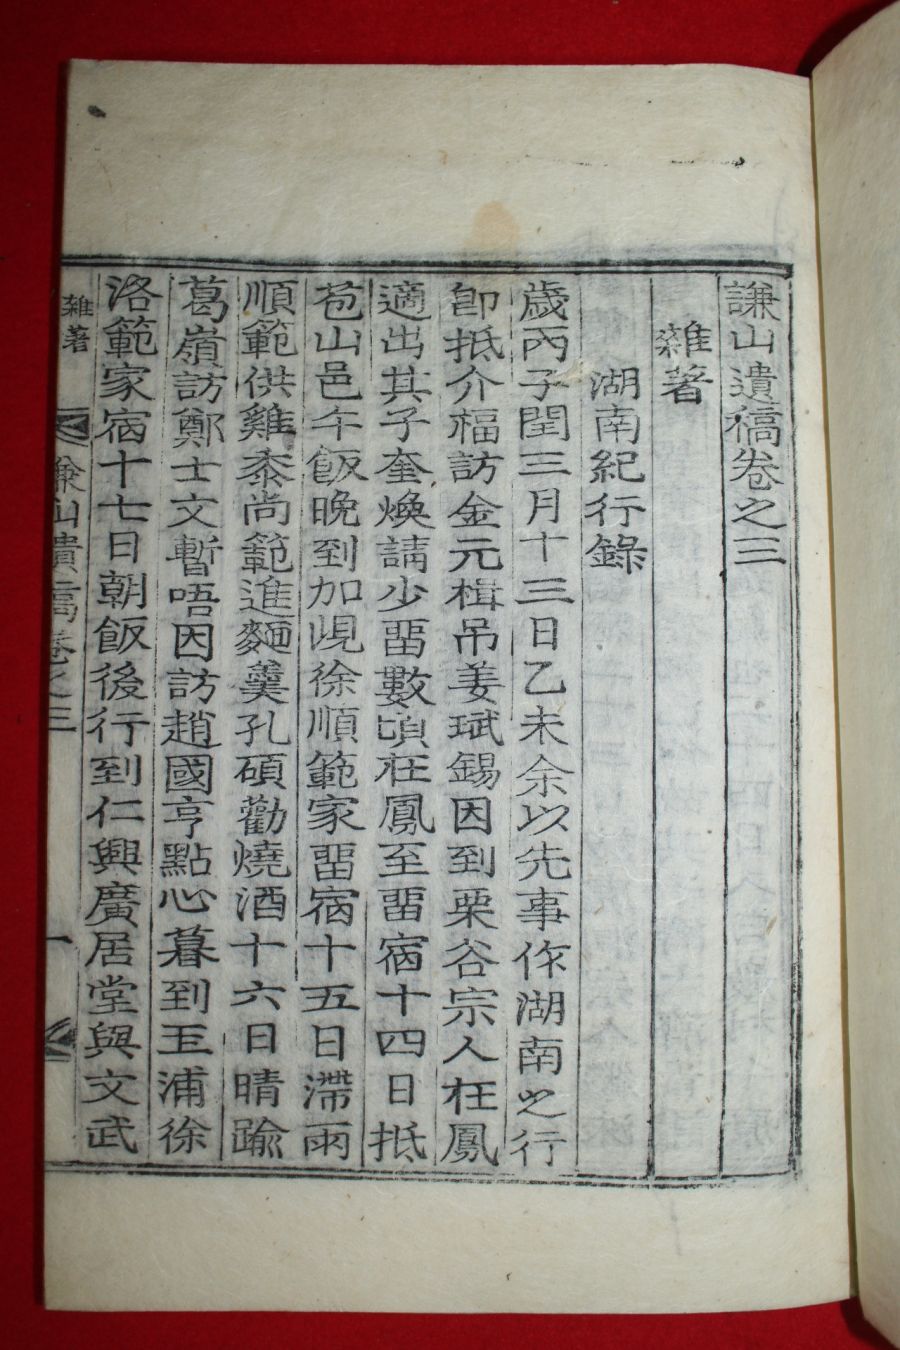 謙山遺稿卷之三
雜著
湖南紀行錄
歲丙子閏三月十三日乙未余以先事作湖南之行
卽抵介福訪金元楫吊姜珷錫因到栗谷宗人枉鳳
適出其子奎煥請少留數頃枉鳳至留宿十四日抵
苞山邑午飯晩到加峴徐順範家留宿十五日滯雨
順範供雞黍尚範進麵羹孔碩勸燒酒十六日晴踰
葛嶺訪鄭士文暫唔因訪趙國亨點心暮到玉浦徐
洛範家宿十七日朝飯後行到仁興廣居堂與文武
雜著
謙山遺稿卷之三
一